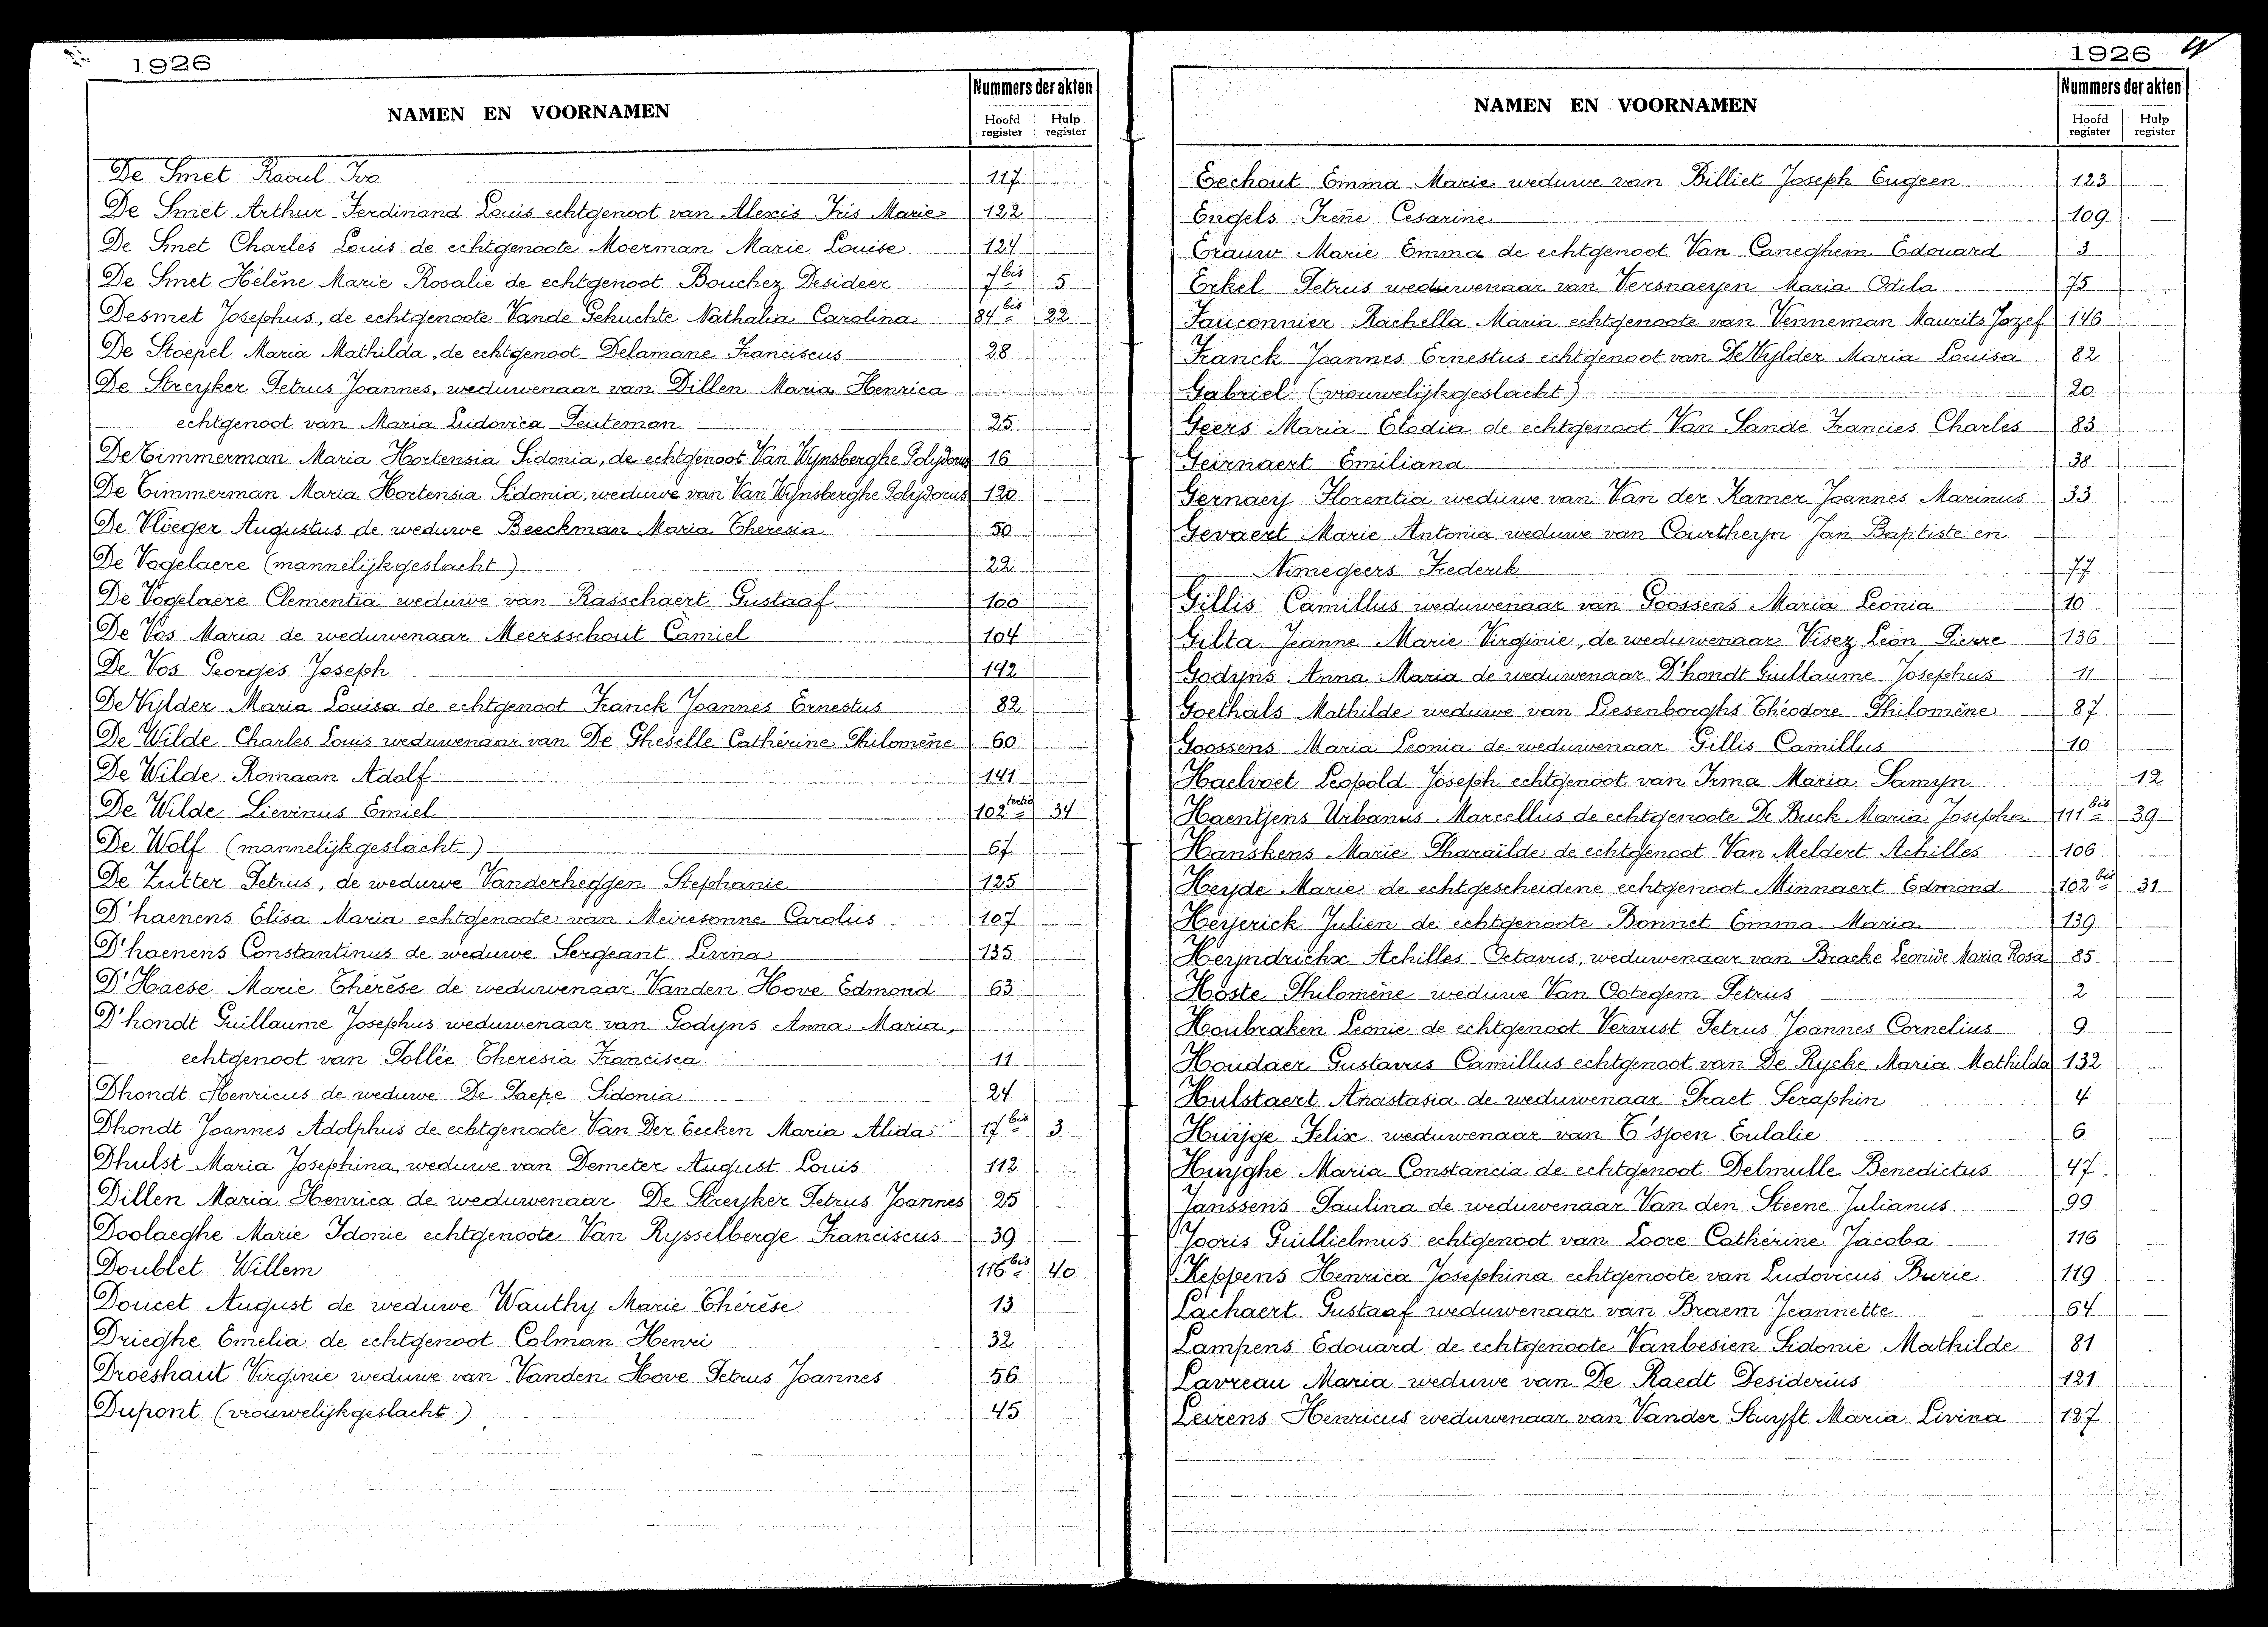 1926
NAMEN EN VOORNAMEN
Nummers der akten
Hoofd register Hulp register
De Smet Raoul Iva 117
De Smet Arthur Ferdinand Louis echtgenoot van Alexis Iris Marie 122
De Smet Charles Louis de echtgenoote Moerman Marie Louise 124
De Smet Hélène Marie Rosalie de echtgenoot Bouchez Desideer 7bis 5
Desmet Josephus, de echtgenoote Vande Gehuchte Nathalia Carolina 84bis 22
De Stoepel Maria Mathilda, de echtgenoot Delamane Franciscus 28
De Streyker Petrus Joannes, weduwenaar van Dillen Maria Henrica
echtgenoot van Maria Ludovica Peuteman 25
De Timmerman Maria Hortensia Sidonia, de echtgenoot Van Wynsberghe Polydorus 16
De Timmerman Maria Hortensia Sidonia, weduwe van Van Wynsberghe Polydorus 120
De Vlieger Augustus de weduwe Beeckman Maria Theresia 50
De Vogelaere (mannelijkgeslacht) 22
De Vogelaere Clementia weduwe van Rasschaert Gustaaf 100
De Vos Maria de weduwenaar Meersschout Camiel 104
De Vos Georges Joseph 142
De Wylder Maria Louisa de echtgenoot Franck Joannes Ernestus 82
De Wilde Charles Louis weduwenaar van De Gheselle Cathérine Philomène 60
De Wilde Romaan Adolf 141
De Wilde Lievinus Emiel 102tertio 34
De Wolf (mannelijkgeslacht) 67
De Zutter Petrus, de weduwe Vanderheggen Stephanie 125
D'haenens Elisa Maria echtgenoote van Meiresonne Carolus 107
D'haenens Constantinus de weduwe Sergeant Livina 135
D'Haese Marie Thérèse de weduwenaar Vanden Hove Edmond 63
D'hondt Guillaume Josephus weduwenaar van Godyns Anna Maria,
echtgenoot van Pollée Theresia Francisca 11
Dhondt Henricus de weduwe De Paepe Sidonia 24
Dhondt Joannes Adolphus de echtgenoote Van Der Eecken Maria Alida 17bis 3
Dhulst Maria Josephina, weduwe van Demeter August Louis 112
Dillen Maria Henrica de weduwenaar De Streyker Petrus Joannes 25
Doolaeghe Marie Idonie echtgenoote Van Rysselberge Franciscus 39
Doublet Willem 116bis 40
Doucet August de weduwe Wauthy Marie Thérèse 13
Drieghe Emelia de echtgenoot Colman Henri 32
Droeshaut Virginie weduwe van Vanden Hove Petrus Joannes 56
Dupont (vrouwelijkgeslacht) 45
1926
NAMEN EN VOORNAMEN
Nummers der akten
Hoofd register Hulp register
Eechout Emma Marie weduwe van Billiet Joseph Eugeen 123
Engels Irène Cesarine 109
Erauw Marie Emma de echtgenoot Van Caneghem Edouard 3
Erkel Petrus weduwenaar van Versnaeyen Maria Odila 75
Fauconnier Rachella Maria echtgenoote van Venneman Maurits Jozef 146
Franck Joannes Ernestus echtgenoot van De Wylder Maria Louisa 82
Gabriel (vrouwelijkgeslacht) 20
Geers Maria Elodia de echtgenoot Van Sande Francies Charles 83
Geirnaert Emiliana 38
Gernaey Florentia weduwe van Van der Kamer Joannes Marinus 33
Gevaert Marie Antonia weduwe van Courtheyn Jan Baptiste en
Nimegeers Frederik 77
Gillis Camillus weduwenaar van Goossens Maria Leonia 10
Gilta Jeanne Marie Virginie, de weduwenaar Visez Léon Pierre 136
Godyns Anna Maria de weduwenaar D'hondt Guillaume Josephus 11
Goethals Mathilde weduwe van Liesenborghs Théodore Philomène 87
Goossens Maria Leonia de weduwenaar Gillis Camillus 10
Haelvoet Leopold Joseph echtgenoot van Irma Maria Samyn 12
Haentjens Urbanus Marcellus de echtgenoote De Buck Maria Josepha 111bis 39
Hanskens Marie Pharaïlde de echtgenoot Van Meldert Achilles 106
Heyde Marie de echtgescheidene echtgenoot Minnaert Edmond 102bis 31
Heyerick Julien de echtgenoote Bonnet Emma Maria 139
Heyndrickx Achilles Octavus, weduwenaar van Bracke Leonide Maria Rosa 85
Hoste Philomène weduwe Van Ootegem Petrus 2
Houbraken Leonie de echtgenoot Vervust Petrus Joannes Cornelius 9
Houdaer Gustavus Camillus echtgenoot van De Rycke Maria Mathilda 132
Hulstaert Anastasia de weduwenaar Praet Seraphin 4
Huÿge Felix weduwenaar van T'sjoen Eulalie 6
Huyghe Maria Constancia de echtgenoot Delmulle Benedictus 47
Janssens Paulina de weduwenaar Van den Steene Julianus 99
Jooris Guillielmus echtgenoot van Loore Cathérine Jacoba 116
Keppens Henrica Josephina echtgenoote van Ludovicus Burie 119
Lachaert Gustaaf weduwenaar van Braem Jeannette 64
Lampens Edouard de echtgenoote Vanbesien Sidonie Mathilde 81
Lavreau Maria weduwe van De Raedt Desiderius 121
Leirens Henricus weduwenaar van Vander Stuyft Maria Livina 127